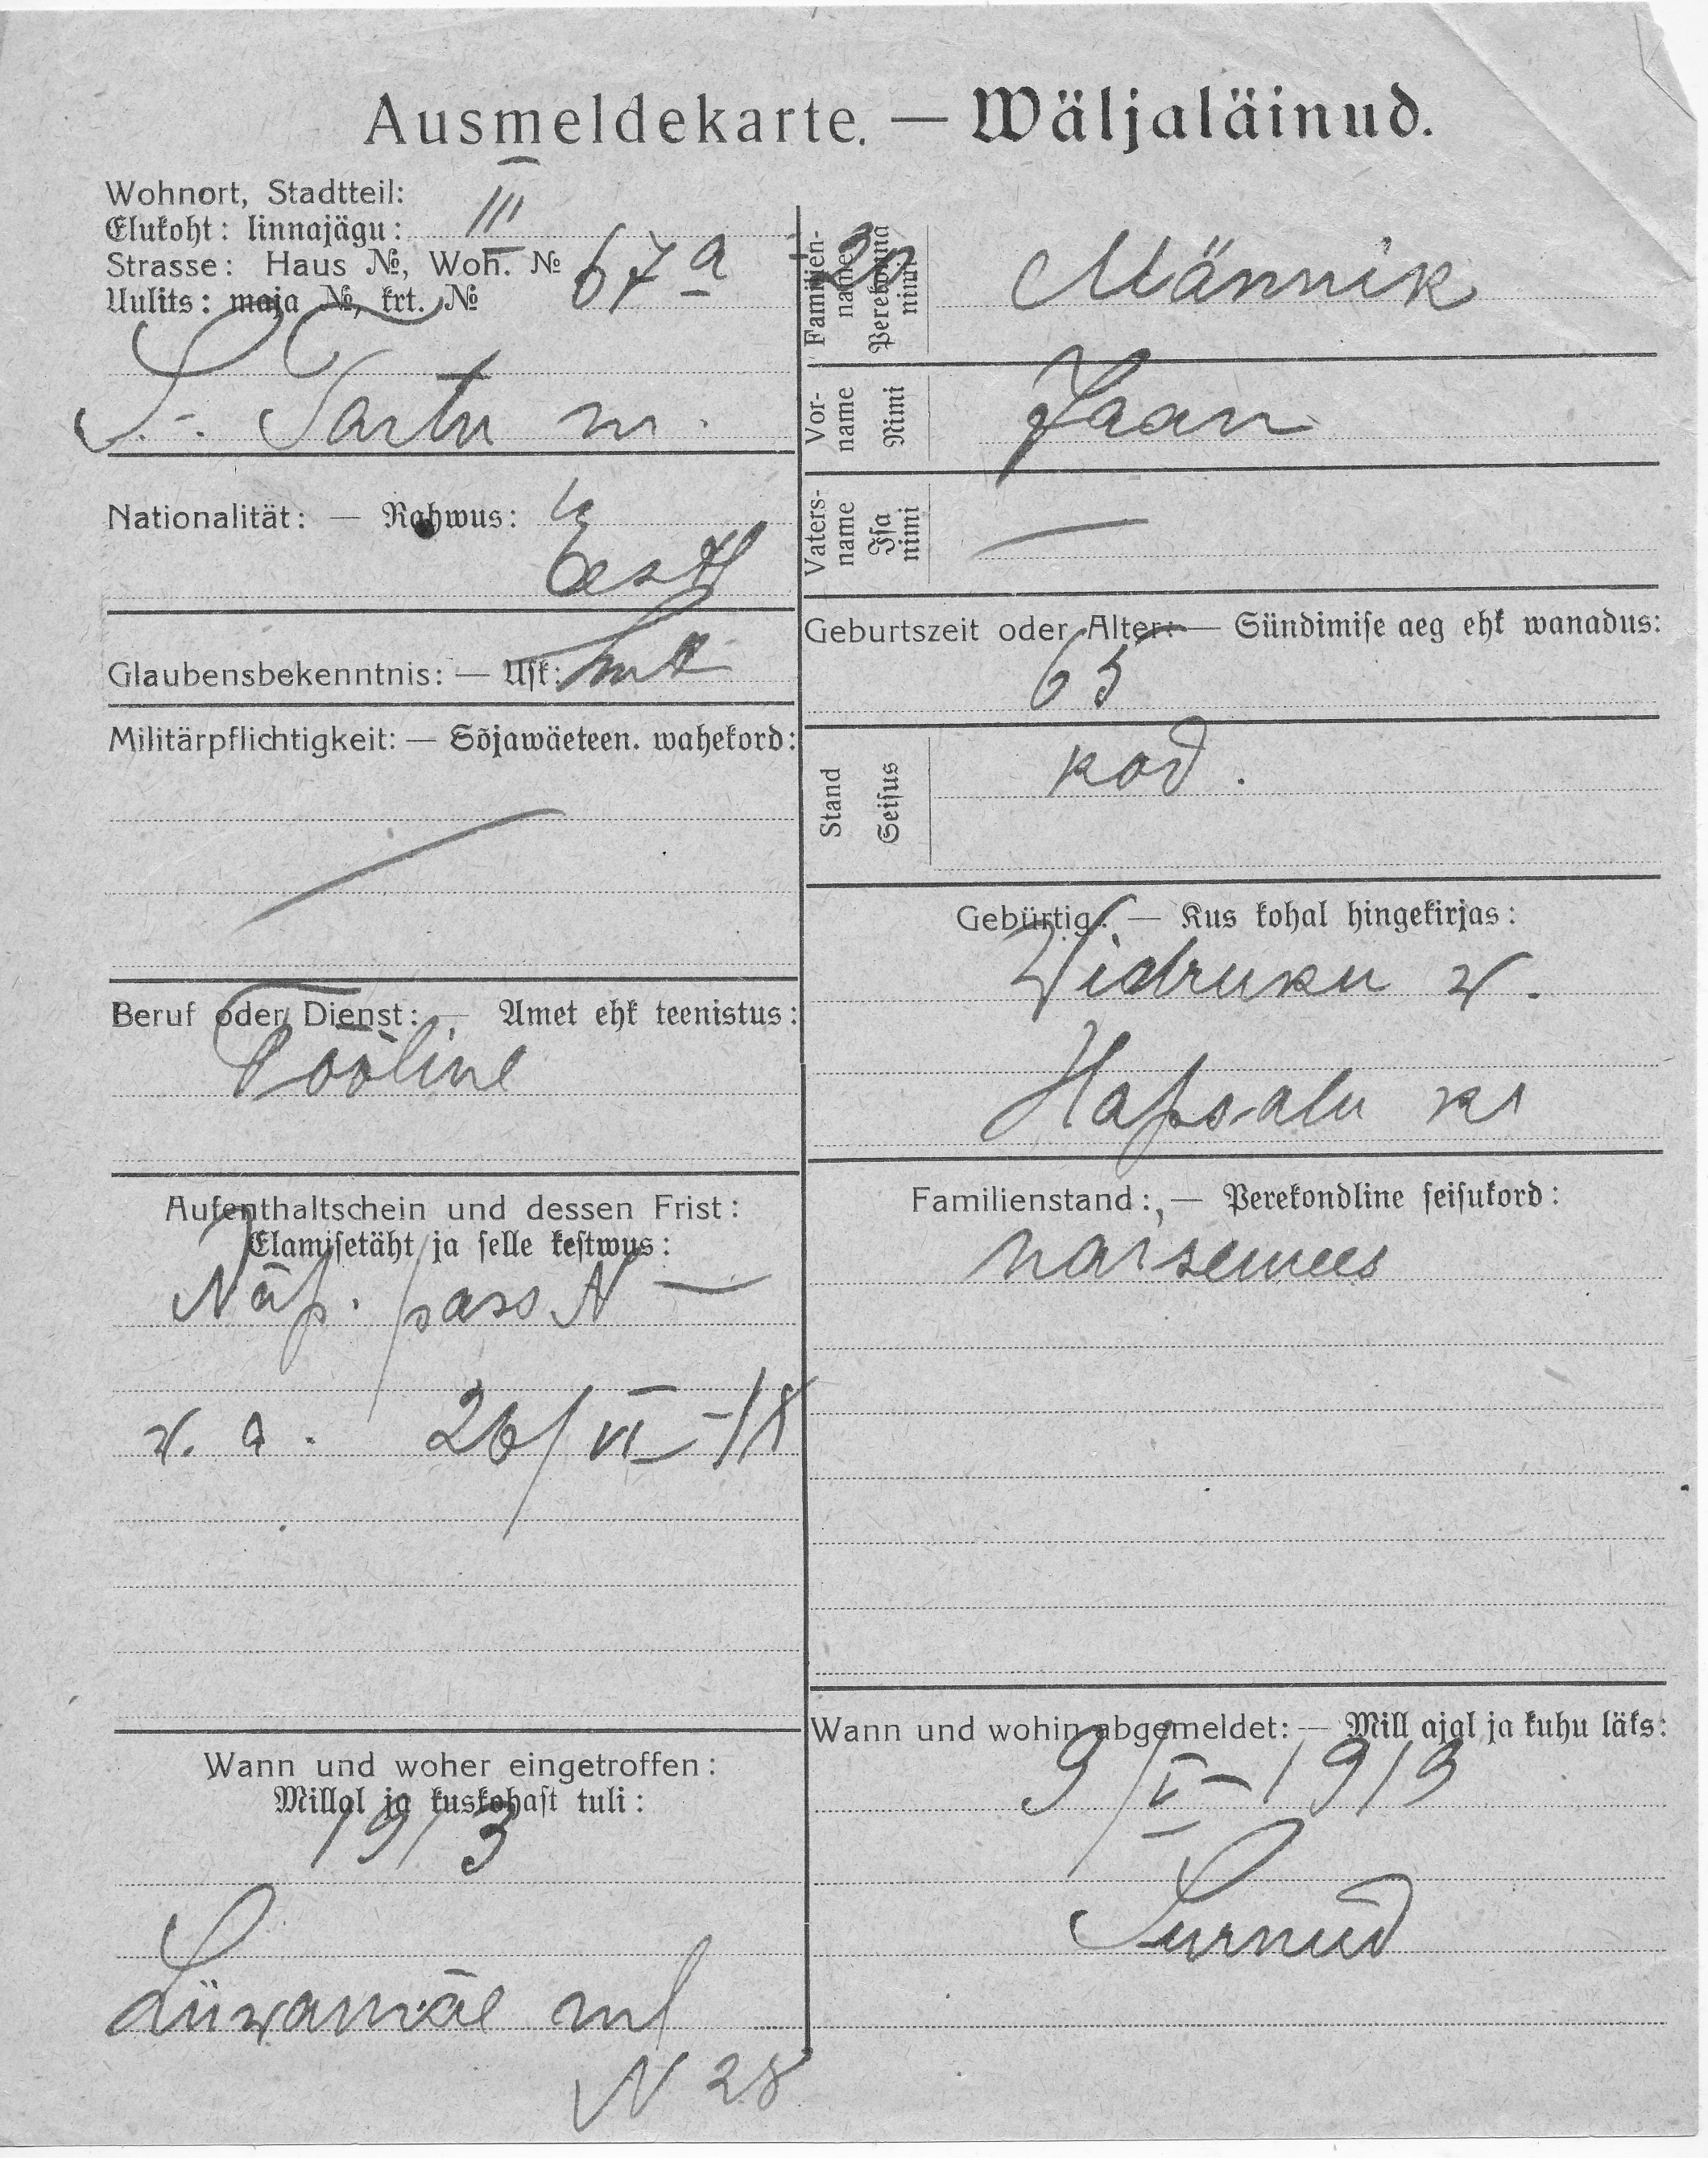 Ausmeldekarte. — Wäljaläinud.
Wohnort, Stadtteil:
Elukoht: linnajägu: III
Strasse: Haus №, Woh. №
Uulits: maja №, krt. № 67a - 20
S. Tartu m.
Nationalität: — Rahwus:
Eestl
Glaubensbekenntnis: — Usk: Lut
Militärpflichtigkeit: — Sõjawäeteen. wahekord:
—
Beruf oder Dienst: — Amet ehk teenistus:
Tööline
Aufenthaltschein und dessen Frist:
Elamisetäht ja selle kestwus:
Näp. pass N —
w. a. 26/VI-18
Wann und woher eingetroffen:
Millal ja kuskohast tuli:
1913
Liiwamäe
N 28
Familien-
name
Perekonna
nimi
Männik
Vor-
name
Nimi
Jaan
Vaters-
name
Isa
nimi
—
Geburtszeit oder Alter: — Sündimise aeg ehk wanadus:
65
Stand
Seisus
kod.
Gebürtig: — Kus kohal hingekirjas:
Widruku w.
Hapsalu kr
Familienstand: — Perekondline seisukord:
naisemees
Wann und wohin abgemeldet: — Mill ajal ja kuhu läks:
9/V-1919
Surnud